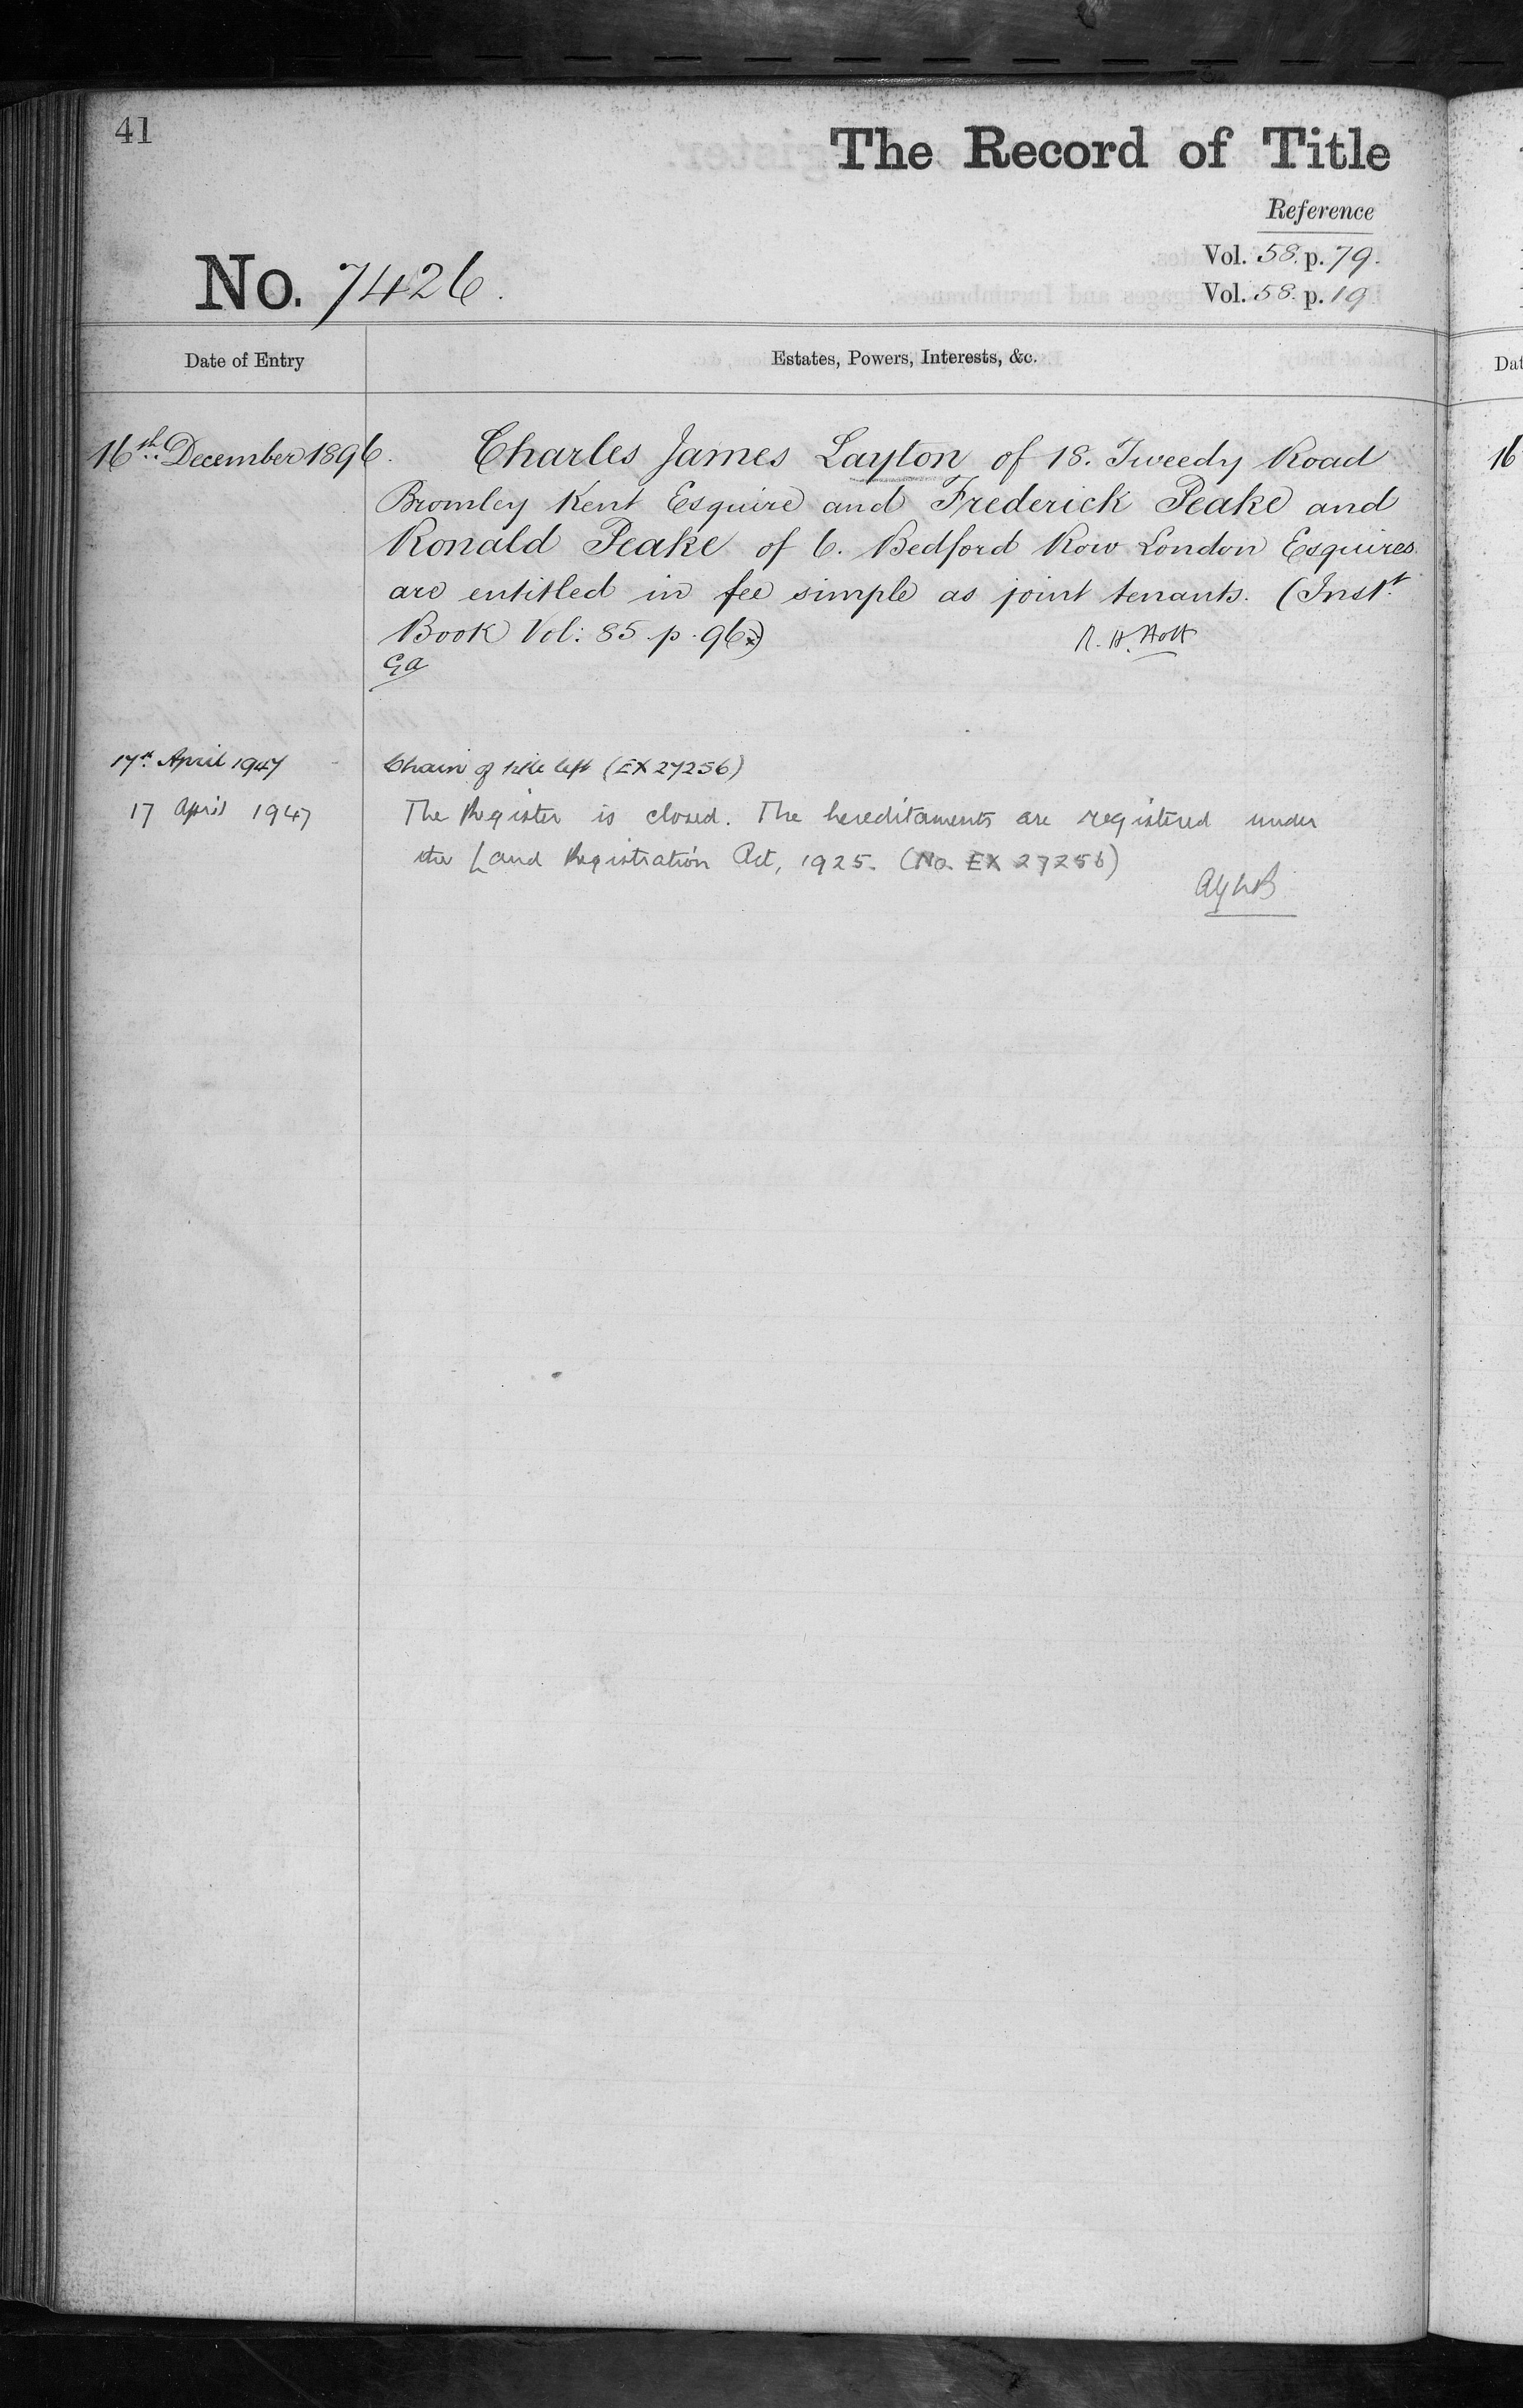 41
The Record of Title
Reference
Vol. 58. p. 79.
No. 7426.
Vol. 58. p. 19
Date of Entry
Estates, Powers, Interests, &c.
16th December 1896. Charles James Layton of 18. Tweedy Road
Bromley Kent Esquire and Frederick Peake and
Ronald Peake of 6. Bedford Row London Esquires
are entitled in fee simple as joint tenants. (Inst.t
Book Vol: 85 p. 96)
R. H. Holt
17th April 1947 Chain of title left (EX 27256)
17 April 1947 The Register is closed. The hereditaments are registered under
the Land Registration Act, 1925. (No. EX 27256)
Dat
16